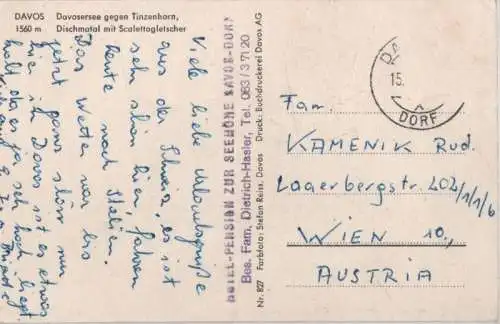 DAVOS Davosersee gegen Tinzenhorn,
1560 m Dischmatal mit Scalettagletscher
Viele liebe Urlaubsgrüße
aus der Schweiz, es ist
sehr schön hier, fahren
heute nach Italien.
Das Wetter war bis
jetzt ganz schön nur
hier in Davos ist es etwas
kalt da es ja sehr hoch liegt.
HOTEL-PENSION ZUR SEEHÖHE DAVOS-DORF
Bes. Fam. Dietrich-Hasler, Tel. 083/3 71 20
Nr. 827 Farbfoto: Stefan Reiss, Davos Druck: Buchdruckerei Davos AG
15.
DORF
Fam.
KAMENIK Rud.
Laaerbergstr. 202/1/1/6
WIEN 10.,
AUSTRIA